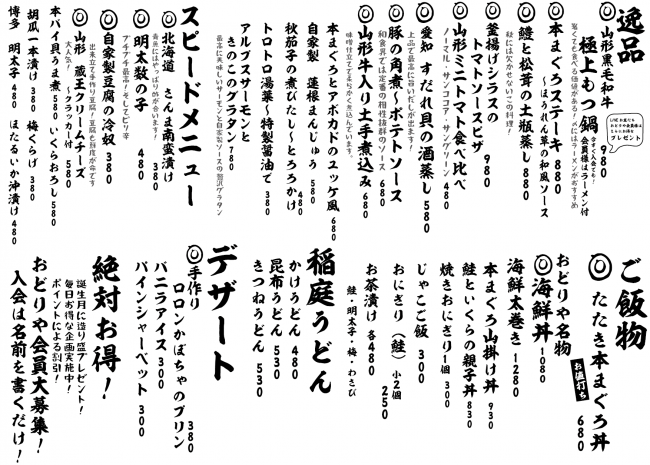 逸品
◎山形黒毛和牛
極上もつ鍋 980
今すぐ入会でも!
会員様はラーメン付
驚くです食べる価値がある!〆にはラーメンがおすすめ
プレゼント
本まぐろステーキ 880
～ほうれん草の和風ソース
◎鱧と松茸の土瓶蒸し 880
秋には欠かせないこの料理!
釜揚げシラスの
トマトソースピザ 980
◎山形ミニトマト食べ比べ
ノーマル・サンココア・サングリーン 480
◎愛知 すだれ貝の酒蒸し 580
上品で最高に旨いだしが出ます!
◎豚の角煮～ポテトソース
和食界では定番の相性抜群のソース 680
◎山形牛入り土手煮込み 680
味噌仕立てで柔らかく煮込んでいます。
本まぐろとアボカドのユッケ風 680
自家製 蓮根まんじゅう 580
秋茄子の煮びたし～とろろかけ 480
トロトロ湯葉～特製醤油で 380
アルプスサーモンと
きのこのグラタン 780
最高に美味しいサーモンと自家製ソースの贅沢グラタン
スピードメニュー
◎北海道 さんま南蛮漬け 380
青魚にはやっぱり酢が合います!
◎明太数の子 480
プチプチ最高!そしてピリ辛
◎自家製豆腐の冷奴 380
出来立て手作り豆腐!豆腐も鮮度が命です
◎山形 蔵王クリームチーズ
～クラッカー付 580
大人気!
本バイ貝うま煮 580 いくらおろし 580
胡瓜一本漬け 380 梅くらげ 380
博多 明太子 480 ほたるいか沖漬け 480
ご飯物
◎たたき本まぐろ丼 680
お値打ち
おどりや名物
◎海鮮丼 1080
海鮮太巻き 1280
本まぐろ山掛け丼 930
鮭といくらの親子丼 830
焼きおにぎり1個 300
じゃこご飯 300
おにぎり(鮭) 小2個 250
お茶漬け 各480
鮭・明太子・梅・わさび
稲庭うどん
かけうどん 480
昆布うどん 530
きつねうどん 530
デザート
◎手作り
ロロンかぼちゃのプリン 380
バニラアイス 300
パインシャーベット 300
絶対お得!
誕生月に造り盛プレゼント!
毎日お得な企画実施中!
ポイントによる割引!
おどりや会員大募集!
入会は名前を書くだけ!